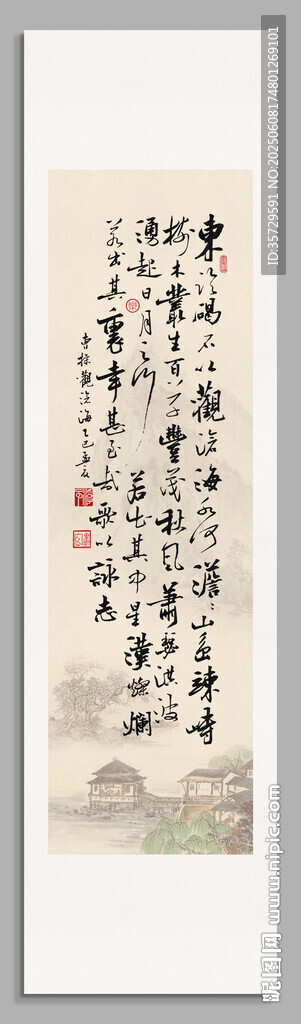 東临碣石以觀滄海水何澹々山岛竦峙
樹木叢生百草豐茂秋風蕭瑟洪波
湧起日月之行若出其中星漢燦爛
若出其裏幸甚至哉歌以詠志
曹操觀滄海乙巳孟夏
ID:35729591 NO:20250608174801269101
昵图网 www.nipic.com